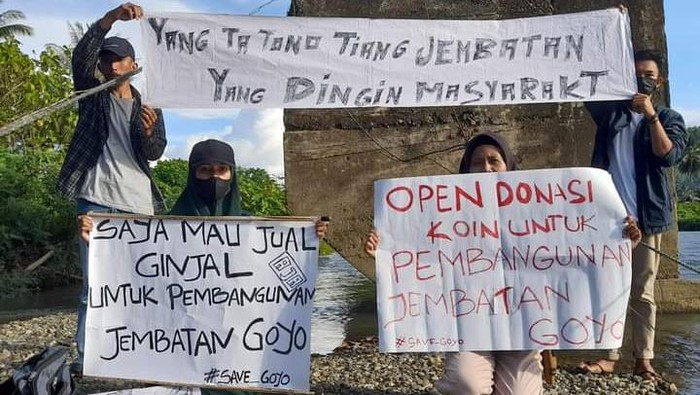 YANG TATONO TIANG JEMBATAN
YANG DINGIN MASYARAKT
SAYA MAU JUAL
GINJAL
UNTUK PEMBANGUNAN
JEMBATAN GOYO
#SAVE_GOYO
OPEN DONASI
KOIN UNTUK
PEMBANGUNAN
JEMBATAN
GOYO
#SAVE_GOYO